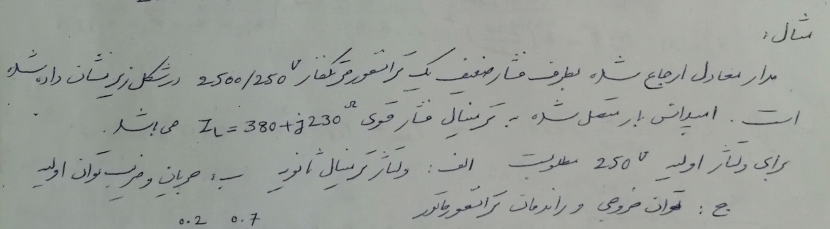 مثال:
مدار معادل ارجاع شده بطرف فشار ضعیف یک ترانسفورمر تکفاز 2500/250^V در شکل زیر نشان داده شده
است. امپدانس بار متصل شده به ترمینال فشار قوی Z_L = 380 + j230^Ω می باشد.
برای ولتاژ اولیه 250^V مطلوبست الف: ولتاژ ترمینال ثانویه ب: جریان و ضریب توان اولیه
ج: توان خروجی و راندمان ترانسفورماتور
0.2 0.7